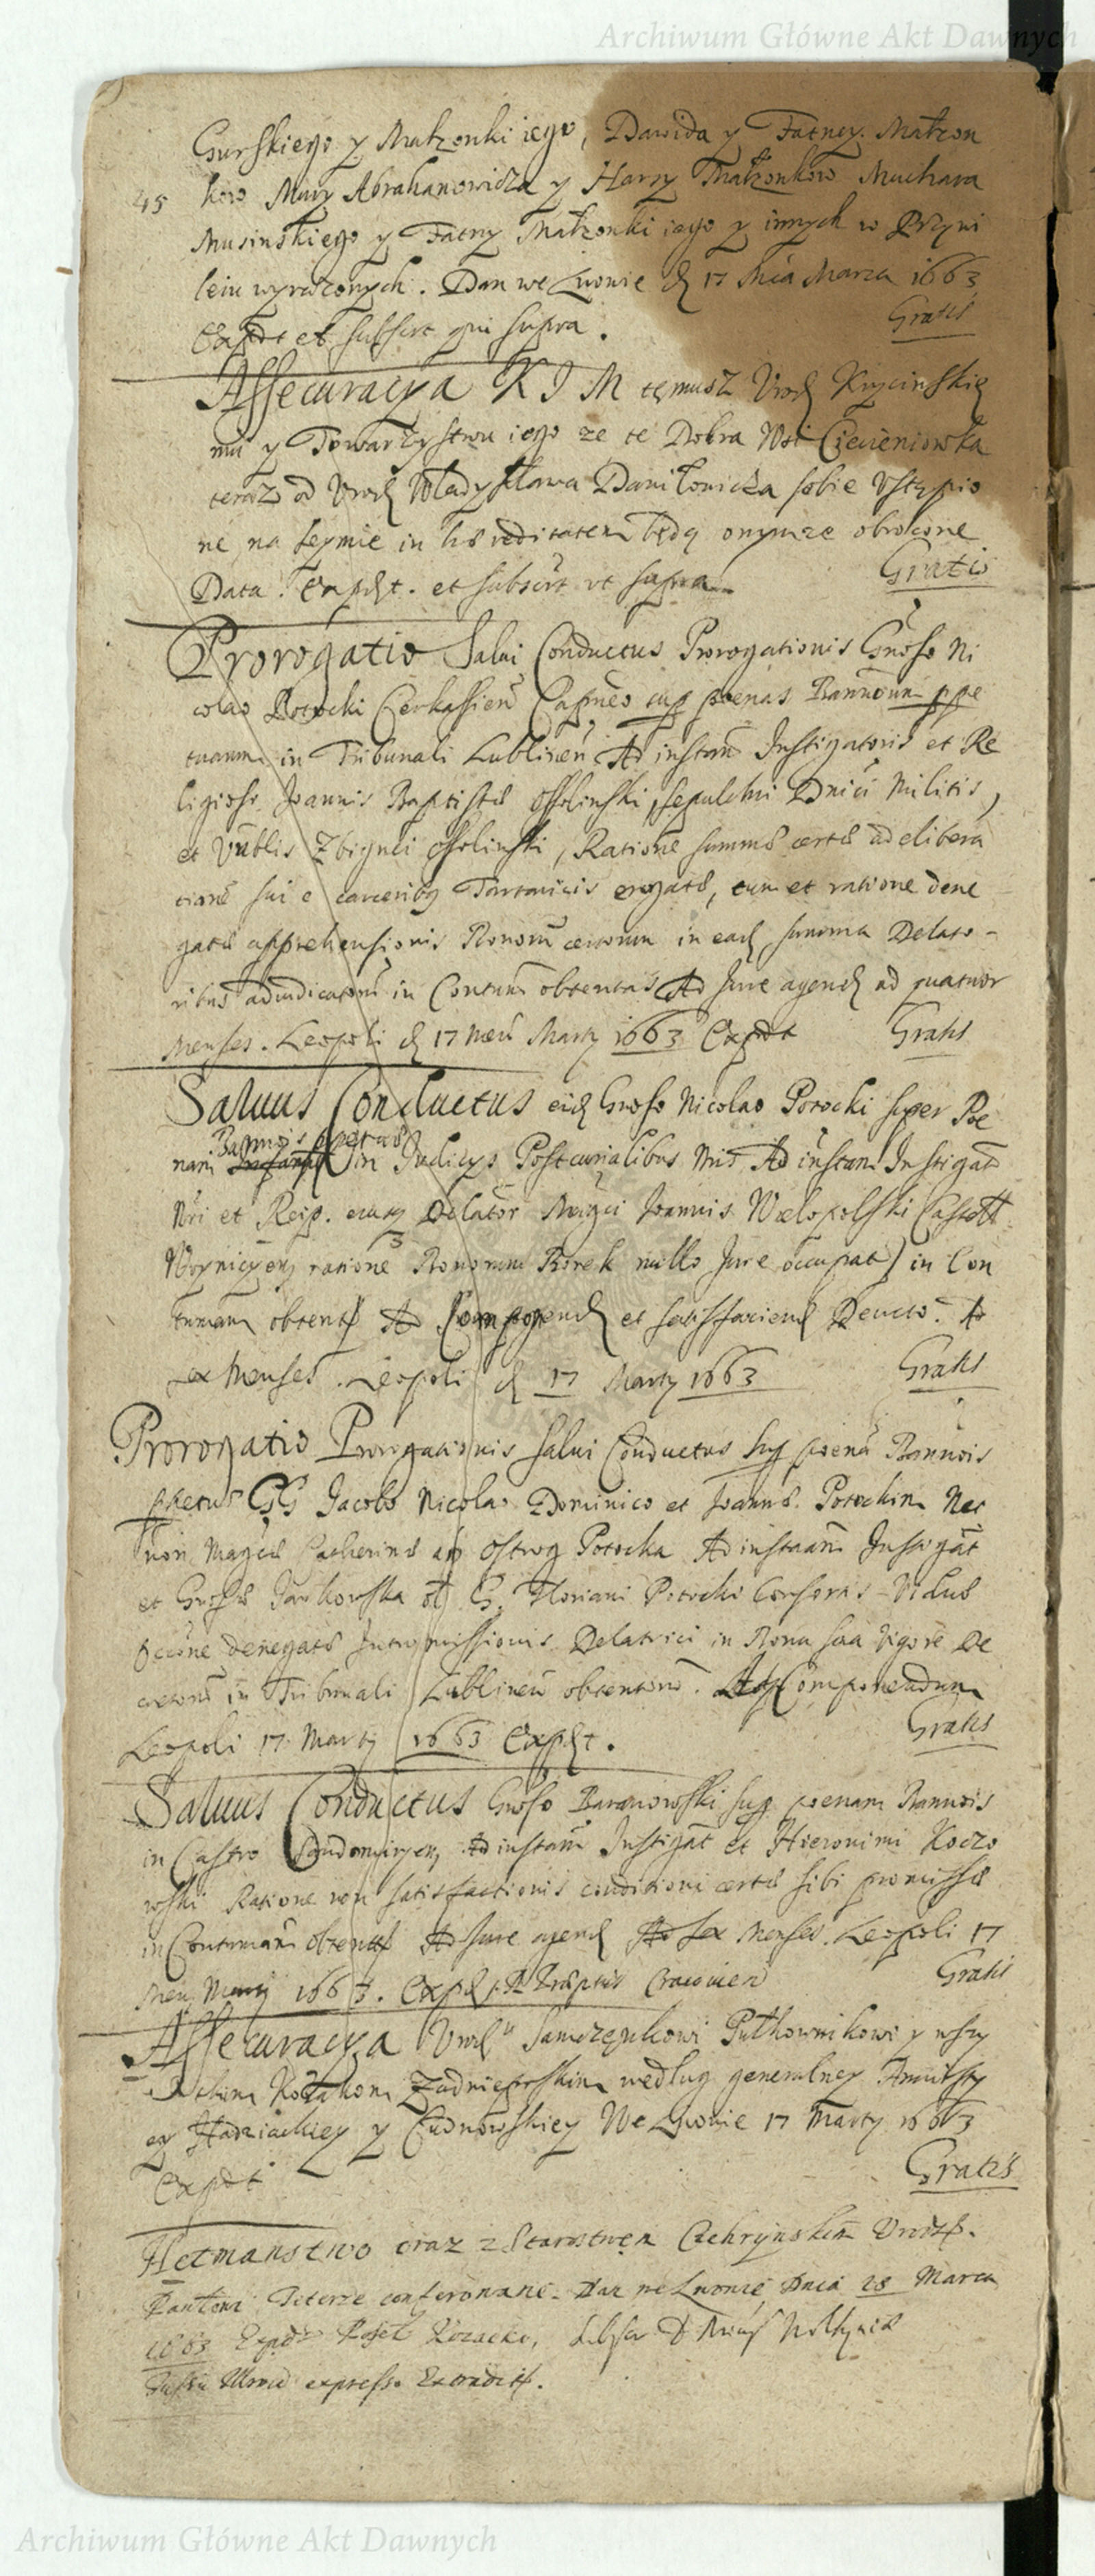 Archiwum Główne Akt Dawnych
Gurskiego y Małzonki iego, Dawida y Fatney Małzon
45 kow Mury Abrahamowicza y Harry Małzonkow Muchara
Musinskiego y Fatny Małzonki iego y innych w Przywi
leiu wyrazonych. Dan we Lwowie d 17 Mca Marca 1663
Expdt et subscr qui supra. Gratis
Assecuracya K J M temusz Urod Krycinskie
mu y Towarzystwu iego ze te Dobra Wsi Ciecieniowka
teraz od Urod Władysława Daniłowicza sobie Ustąpio
ne na Seymie in hæreditatem będą onymze obrocone
Data. Expdt. et subscrt ut supra Gratis
Prorogatio Salvi Conductus Prorogationis Gnoso Ni
colao Potocki Cerkassien Capneo sup poenas Bannoum ppe
tuarum in Tribunali Lublinen Ad instan Instigatoris et Re
ligioso Joannis Baptistæ Ossolinski, sepulchri Dnici Militis,
et Vrablis Zbignei Ossolinski, Ratione summæ certæ ad elibera
tione sui e carceribq Tartaricis erogatæ, tum et ratione dene
gatæ apprehensionis Bonorum certorum in ead summa Delato-
ribus adiudicatorum in Contum obtentas Ad Jure agend ad quatuor
Menses. Leopoli d 17 Men Marty 1663 Expdt Gratis
Salvus Conductus eid Gnoso Nicolao Potocki super Poe
Bannois perpetuæ
nam in Judicys Postcurialibus Ad instan Instigat
Nri et Reip. eiusq Delator Magci Joannis Wielopolski Castell
Woyniczen ratione Bonorum Borek nullo Jure occupat) in Con
tumam obtent Ad Componend et satisfaciend Decreto. Ad
sex Menses. Leopoli d 17 Marty 1663 Gratis
Prorogatio Prorogationis Salvi Conductus sup poena Bannois
ppetuæ GG Jacobo Nicolao Dominico et Joanni Potockim Nec
non Magcæ Catherinæ ab Ostrog Potocka Ad instaam Instigat
et Gnosæ Jankowska ol G. Floriani Potocki Consortis Viduæ
Occone denegatæ Intromissionis Delatrici in Bona sua Vigore De
cretoru in Tribunali Lublinen obtentoru. Ad Componendum
Leopoli 17 Marty 1663 Expdt. Gratis
Salvus Conductus Gnoso Baranowski sup poenam Bannois
in Castro Sandomirien Ad instam Instigat et Hieronimi Koczo
wski Ratione non satisfactionis conditioni certæ sibi promissæ
in Contumam obtent Ad Jure agend Ad sex Menses. Leopoli 17
Men Marty 1663. Expd Cracovien Gratis
Assecuracya Urod Samczenkowi Pułkownikowi y wszy
stkim Kozakom Zadnieprskim według generalney Amnisty
ey Hadziackiey y Cudnowskiey We Lwowie 17 Marty 1663
Expdt Gratis
Hetmanstwo oraz z Starostwem Czehrynskim Urodz.
Pawłowi Teterze conferowane. Dan we Lwowie Dnia 28 Marca
1663
expresso Extradit.
Archiwum Główne Akt Dawnych